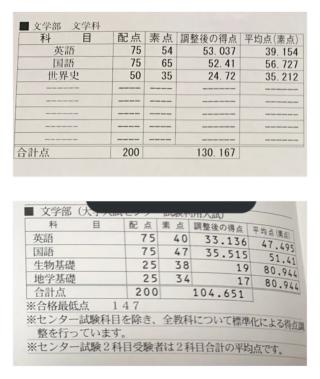 ■ 文学部 文学科
科 目 配点 素点 調整後の得点 平均点(素点)
英語 75 54 53.037 39.154
国語 75 65 52.41 56.727
世界史 50 35 24.72 35.212
------ ------ ------ ------ ------
------ ------ ------ ------ ------
------ ------ ------ ------ ------
------ ------ ------ ------ ------
------ ------ ------ ------ ------
合計点 200 130.167
■ 文学部(大学入試センター試験利用入試)
科 目 配点 素点 調整後の得点 平均点(素点)
英語 75 40 33.136 47.495
国語 75 47 35.515 51.41
生物基礎 25 38 19 80.944
地学基礎 25 34 17 80.944
合計点 200 104.651
※合格最低点 147
※センター試験科目を除き、全教科について標準化による得点調
整を行っています。
※センター試験2科目受験者は2科目合計の平均点です。